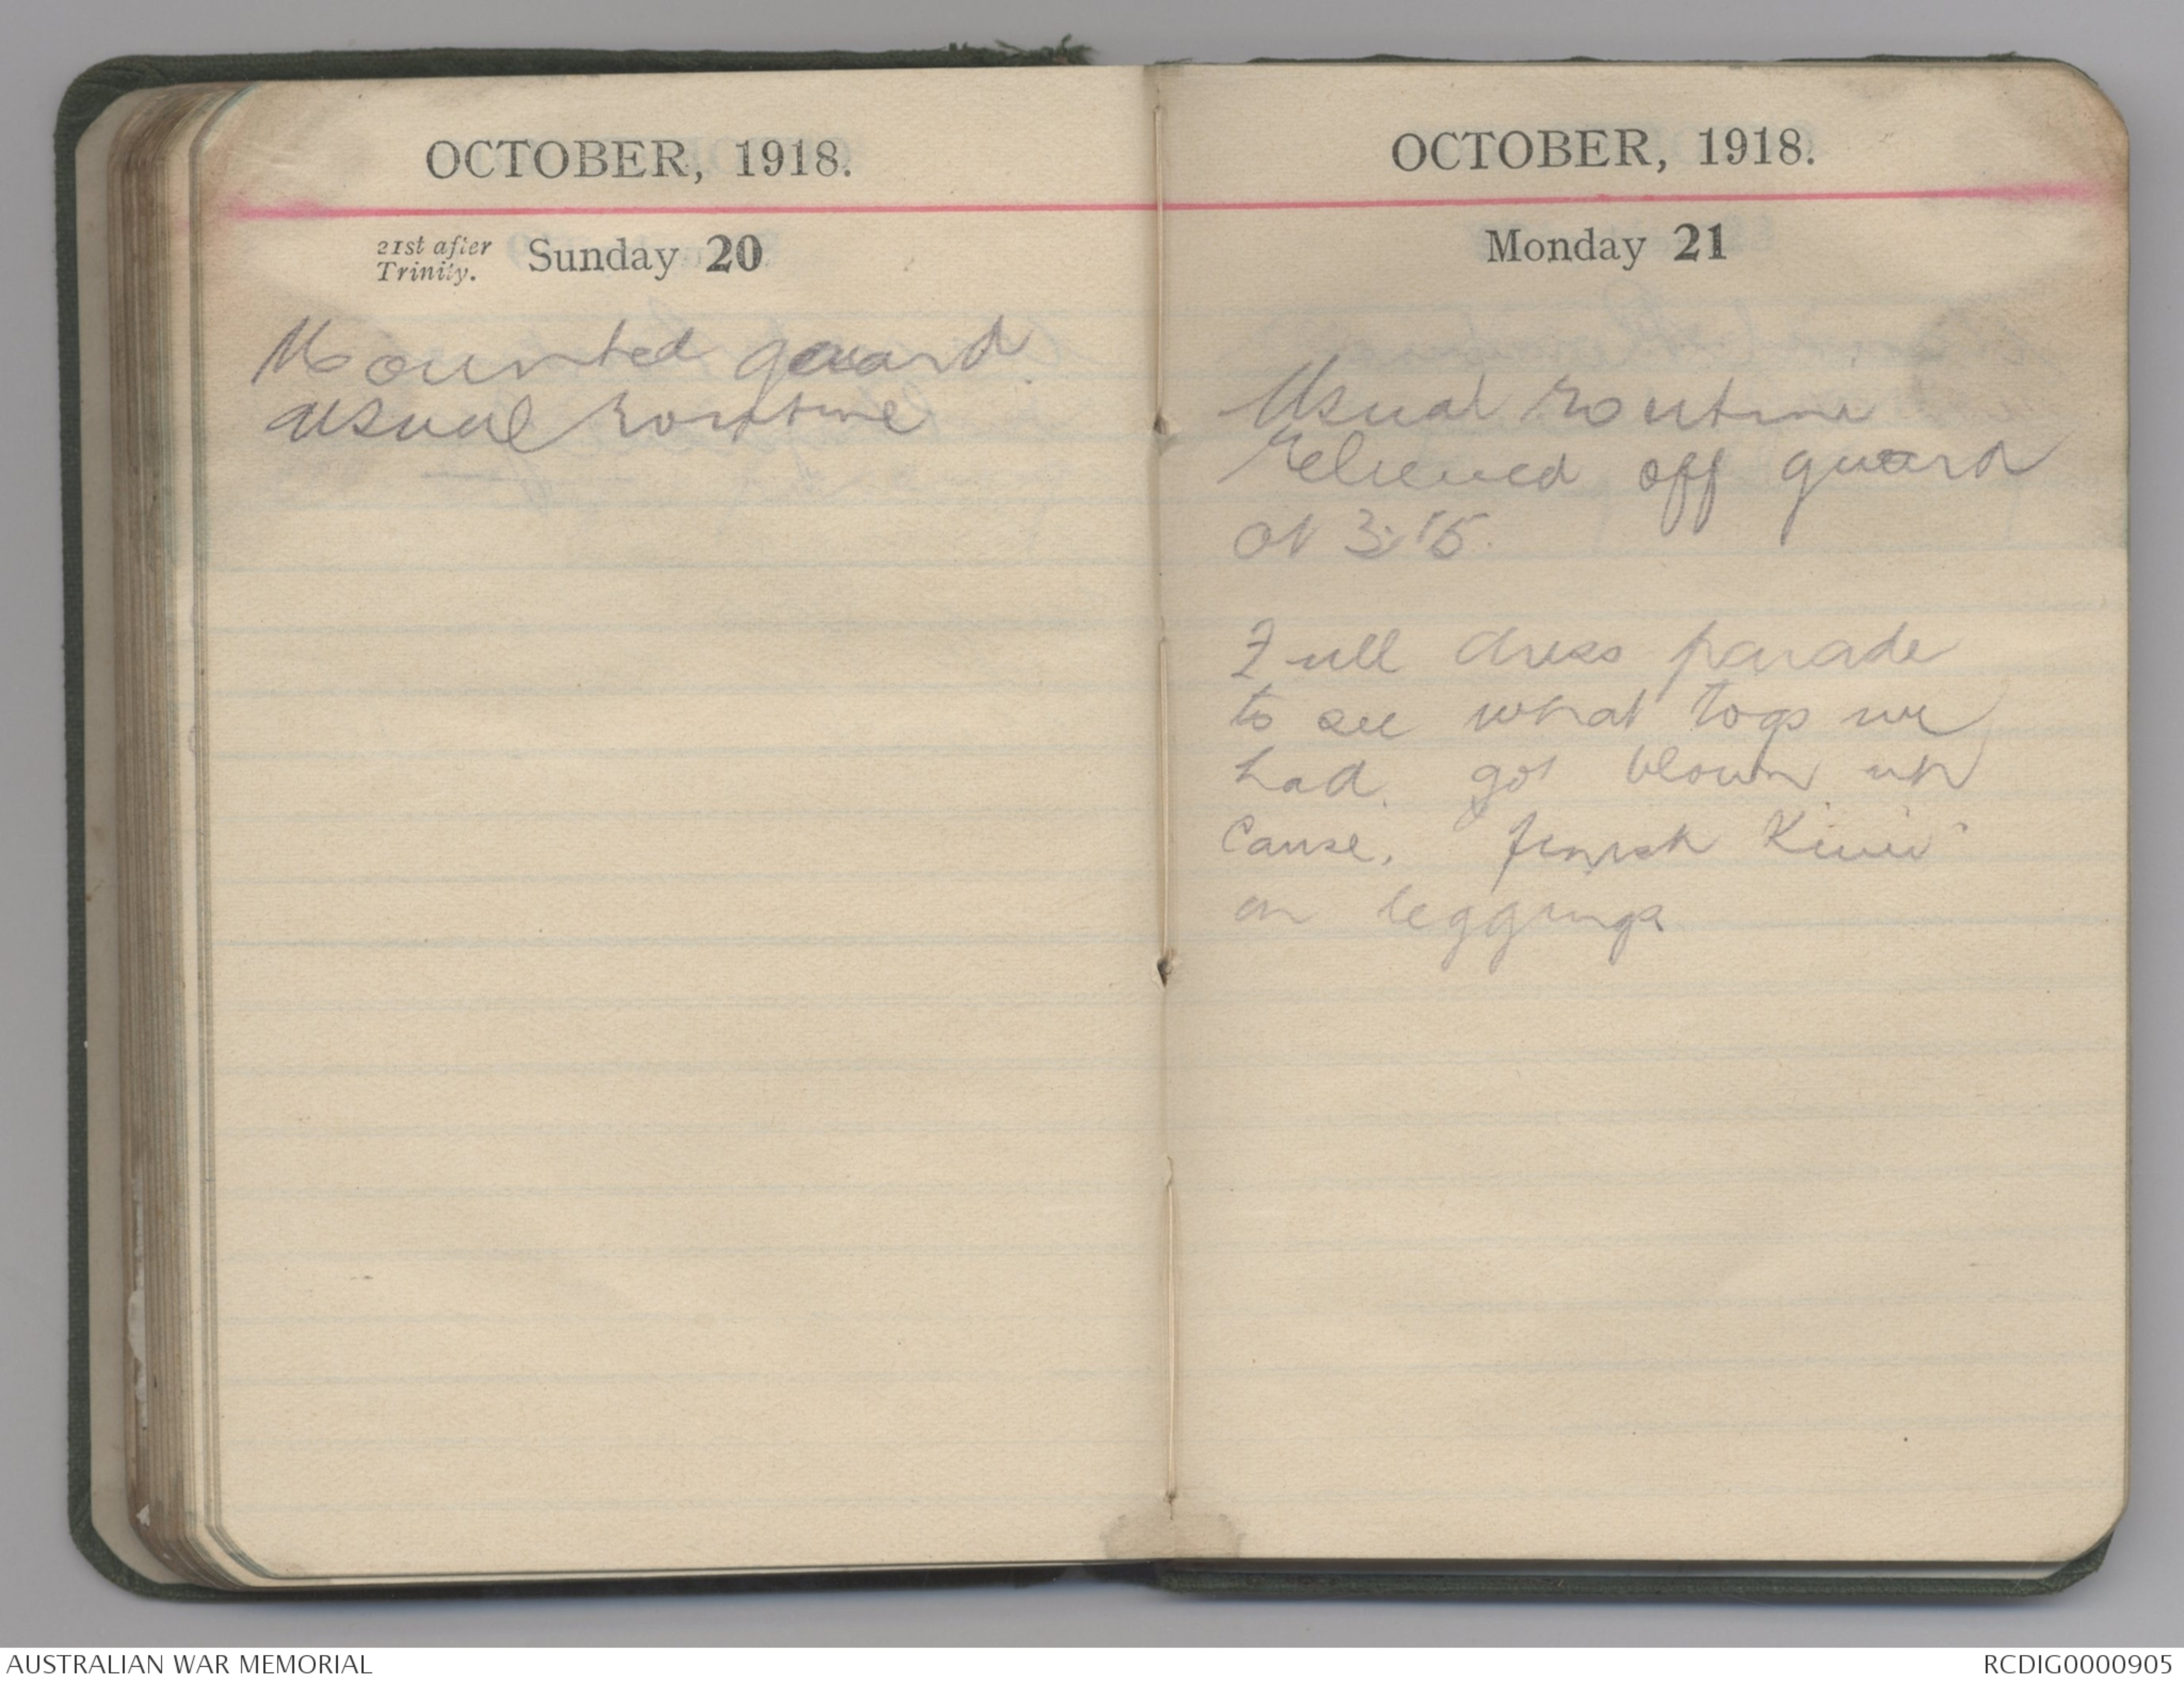 OCTOBER, 1918.
21st after Trinity. Sunday 20
Mounted guard.
usual routine
OCTOBER, 1918.
Monday 21
Usual routine
relieved off guard
at 3.15.
Full dress parade
to see what togs we
had. got blown up
Cause, Kiwi
on leggings
AUSTRALIAN WAR MEMORIAL
RCDIG0000905